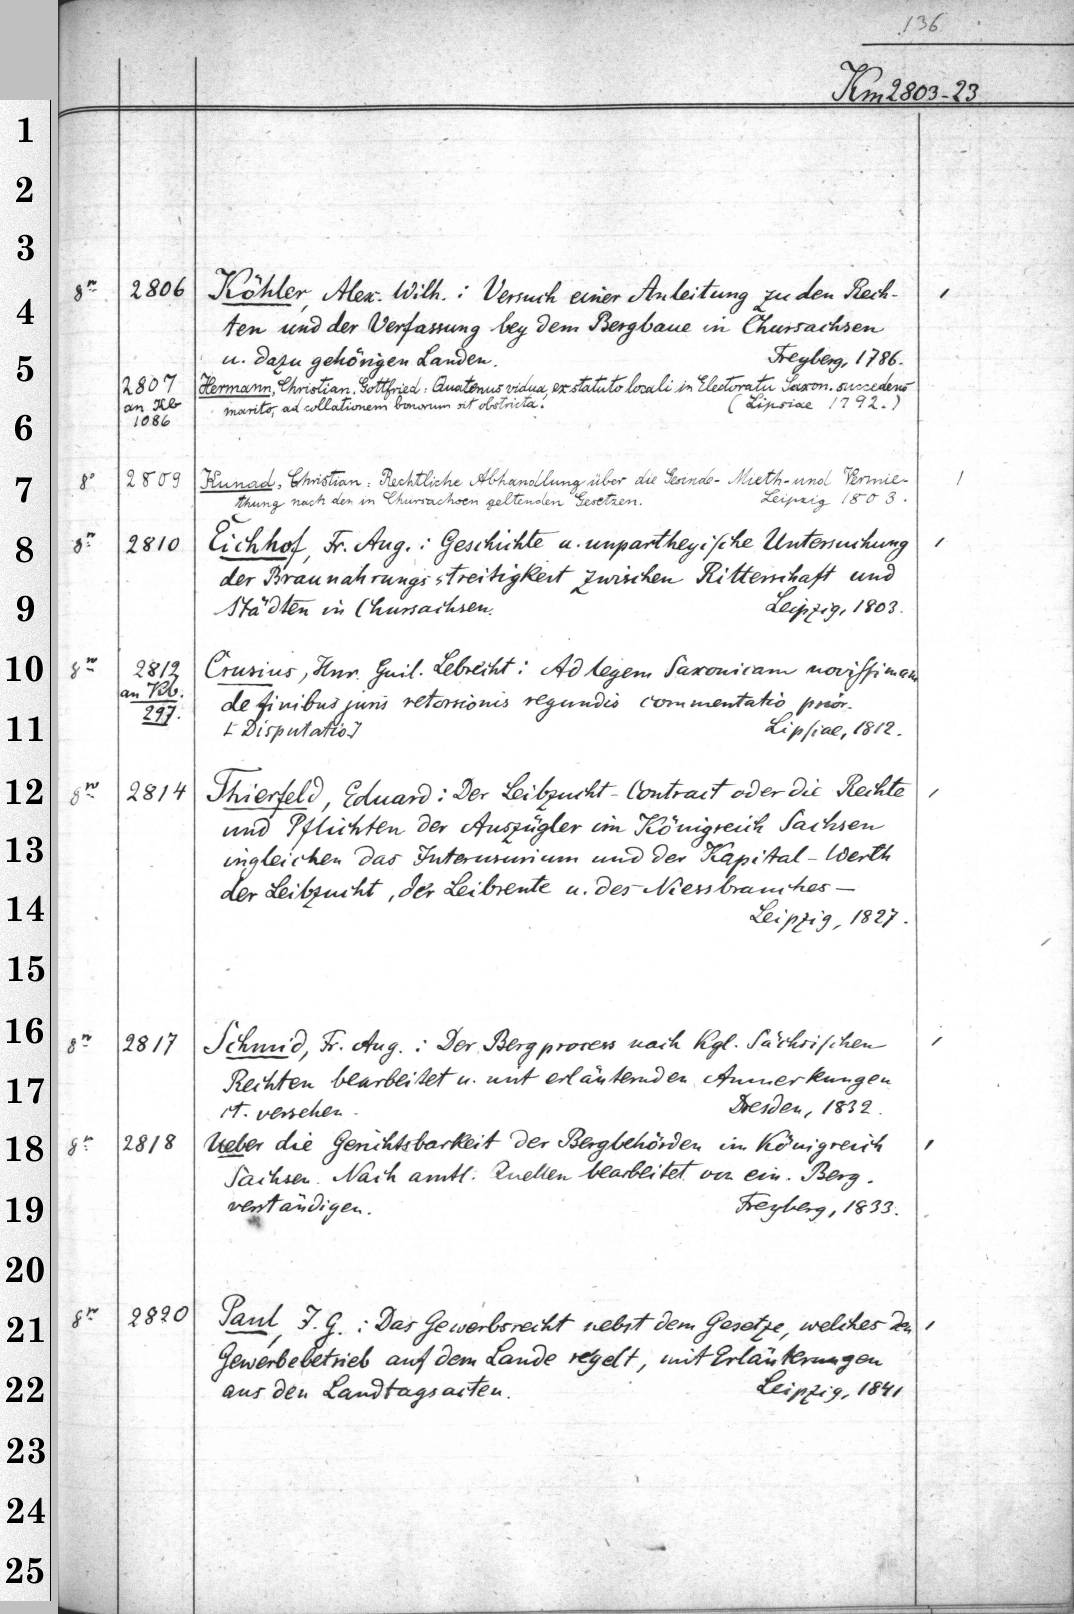 136
Km 2803-23
1
2
3
4
5
6
7
8
9
10
11
12
13
14
15
16
17
18
19
20
21
22
23
24
25
8º 2806 Köhler, Alex. Wilh. : Versuch einer Anleitung zu den Rech-
ten und der Verfassung bey dem Bergbaue in Chursachsen
u. dazu gehörigen Landen. Freyberg, 1786.
2807 Hermann, Christian. Gottfried : Quatenus vidua, ex statuto locali in Electoratu Saxon. succedens
an Kb marito, ad collationem bonorum sit obstricta. (Lipsiae 1792.)
1086
8º 2809 Kunad, Christian : Rechtliche Abhandlung über die Gesinde- Mieth- und Vermie-
thung nach den in Chursachsen geltenden Gesetzen. Leipzig 1803.
8º 2810 Eichhof, Fr. Aug. : Geschichte u. unpartheyische Untersuchung
der Braunahrungsstreitigkeit zwischen Ritterschaft und
Städten in Chursachsen. Leipzig, 1803.
8º 2812 Crusius, Henr. Guil. Lebrecht : Ad legem Saxonicam novissimam
an Kb. de finibus juris retorsionis regundis commentatio prior.
297. [Disputatio] Lipsiae, 1812.
8º 2814 Thierfeld, Eduard : Der Leibzucht-Contract oder die Rechte
und Pflichten der Auszügler im Königreich Sachsen
ingleichen das Interusurium und der Kapital-Werth
der Leibzucht, der Leibrente u. des Niessbrauches —
Leipzig, 1827.
8º 2817 Schmid, Fr. Aug. : Der Bergprocess nach Kgl. Sächsischen
Rechten bearbeitet u. mit erläuternden Anmerkungen
versehen. Dresden, 1832.
8º 2818 Ueber die Gerichtsbarkeit der Bergbehörden im Königreich
Sachsen. Nach amtl. Quellen bearbeitet von ein. Berg-
verständigen. Freyberg, 1833.
8º 2820 Paul, J. G. : Das Gewerbsrecht nebst dem Gesetze, welches den
Gewerbebetrieb auf dem Lande regelt, mit Erläuterungen
aus den Landtagsacten. Leipzig, 1841